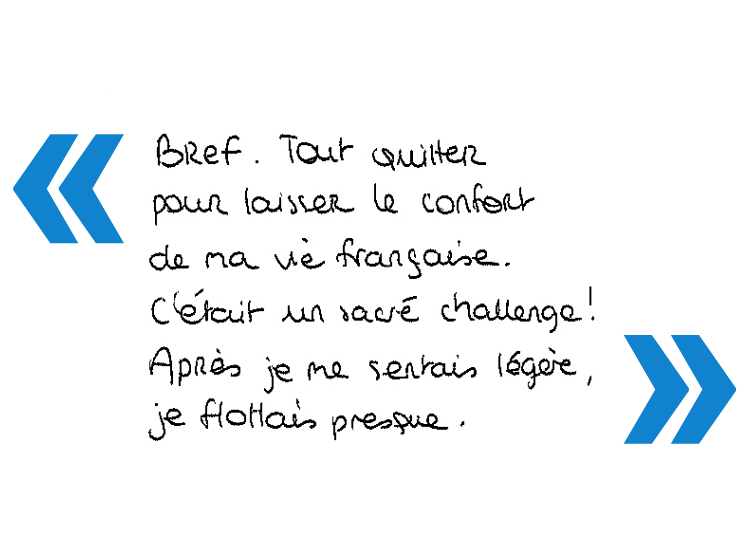 Bref. Tout quitter
pour laisser le confort
de ma vie française.
C'était un sacré challenge!
Après je me sentais légère,
je flottais presque.